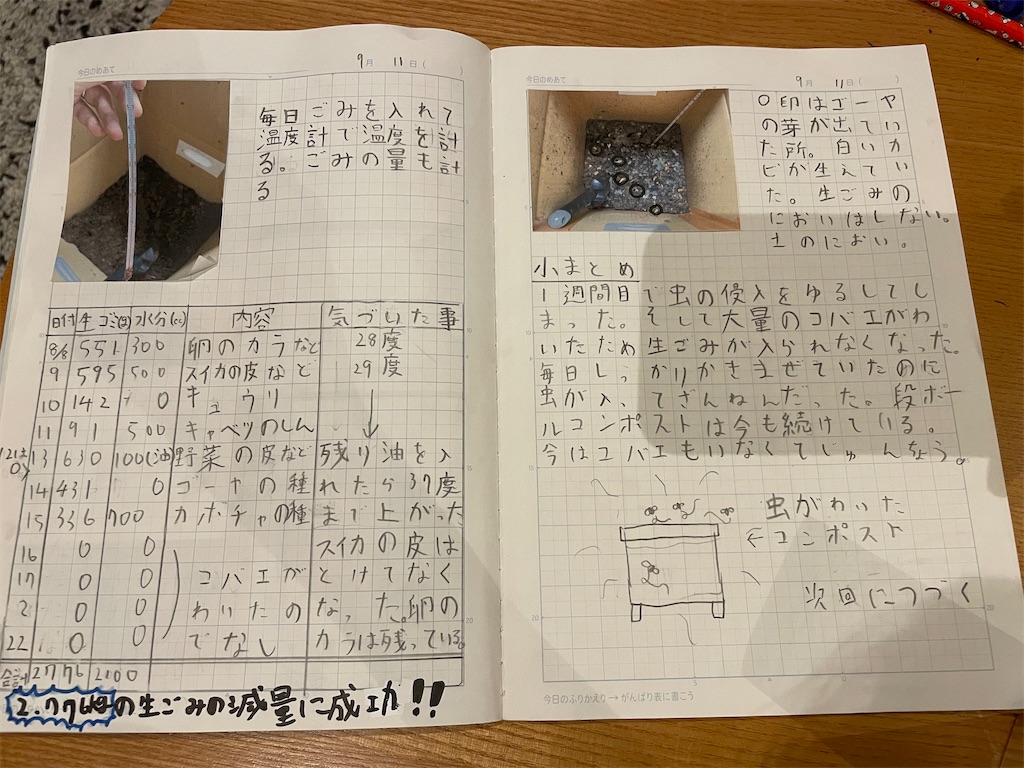 今日のめあて
9月 11日( )
毎日ごみを入れて
温度計で温度を計
る。ごみの量も計
る
日付 生ゴミ(g) 水分(cc) 内容 気づいた事
8/8 551 300 卵のカラなど 28度
9 595 500 スイカの皮など 29度
10 142 0 キュウリ
11 91 500 キャベツのしん ↓
13 630 100(油) 野菜の皮など 残り油を入
14 431 0 ゴーヤの種 れたら37度
15 336 700 カボチャの種 まで上がった
16 0 0 スイカの皮は
17 0 0 コバエが とけてなく
2 0 0 わいたの なった。卵の
22 0 0 でなし カラは残っている。
合計 2776 2100
2.776gの生ごみの減量に成功!!
今日のめあて
9月 11日( )
○印はゴーヤ
の芽が出てい
た所。白いカ
ビが生えてい
た。生ごみの
においはしない。
土のにおい。
小まとめ
1週間目で虫の侵入をゆるしてし
まった。そして大量のコバエがわ
いたため生ごみが入られなくなった。
毎日しっかりかきまぜていたのに
虫が入ってざんねんだった。段ボー
ルコンポストは今も続けている。
今はコバエもいなくてじゅんちょう。
虫がわいた
←コンポスト
次回につづく
今日のふりかえり→がんばり表に書こう